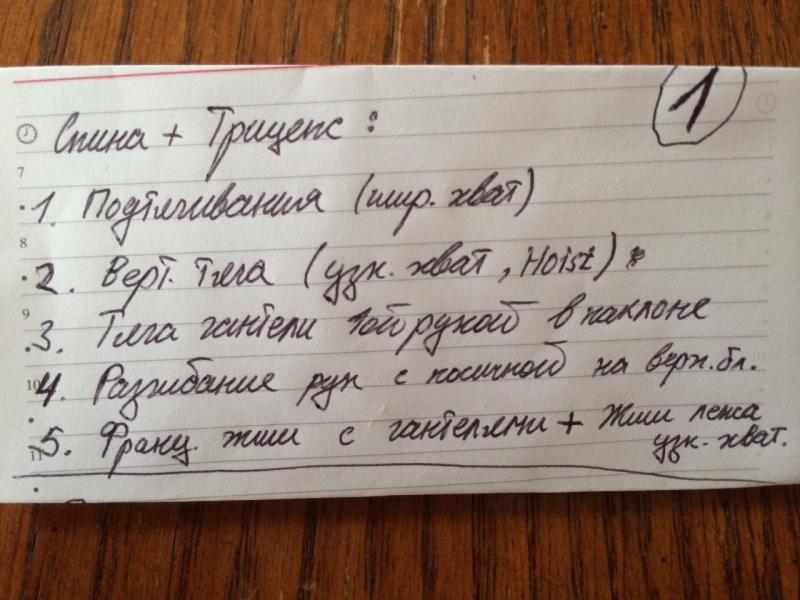 1
Спина + Трицепс :
7
1. Подтягивания (шир. хват)
8
2. Верт. тяга (узк. хват, Hoist)
9
3. Тяга гантели 1ой рукой в наклоне
10
4. Разгибание рук с косичкой на верх. бл.
11
5. Франц. жим с гантелями + Жим лежа
узк. хват.